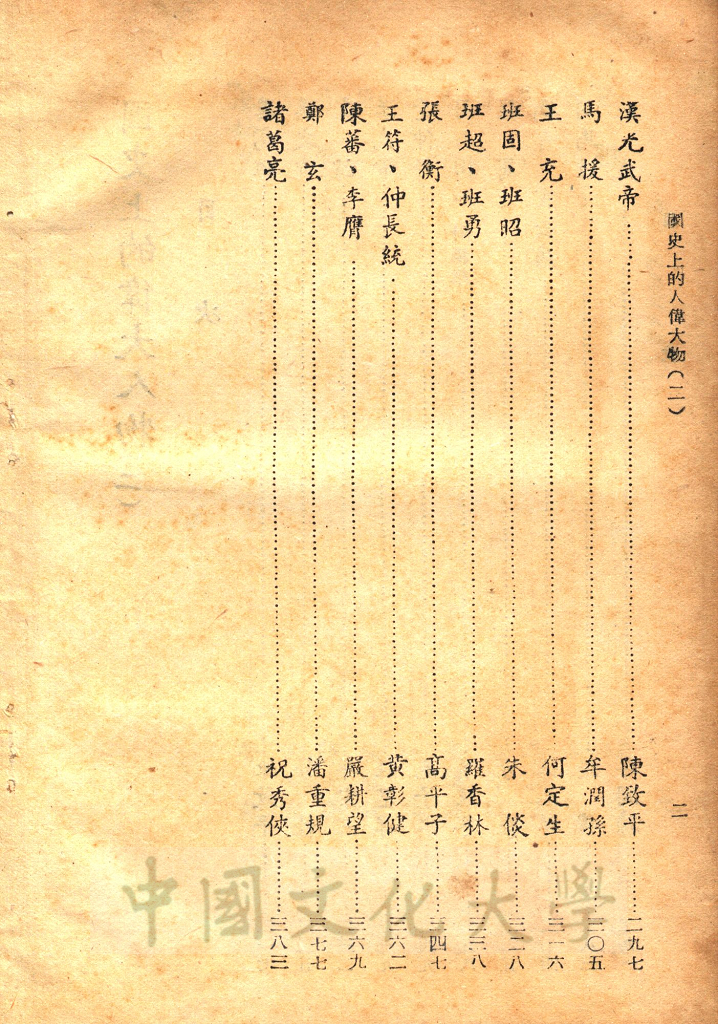 國史上的人偉大物(二)
二
漢光武帝 陳致平 二九七
馬援 牟潤孫 三〇五
王充 何定生 三一六
班固、班昭 朱倓 三二八
班超、班勇 羅香林 三三八
張衡 高平子 三四七
王符、仲長統 黃彰健 三六二
陳蕃、李膺 嚴耕望 三六九
鄭玄 潘重規 三七七
諸葛亮 祝秀俠 三八三
中國文化大學